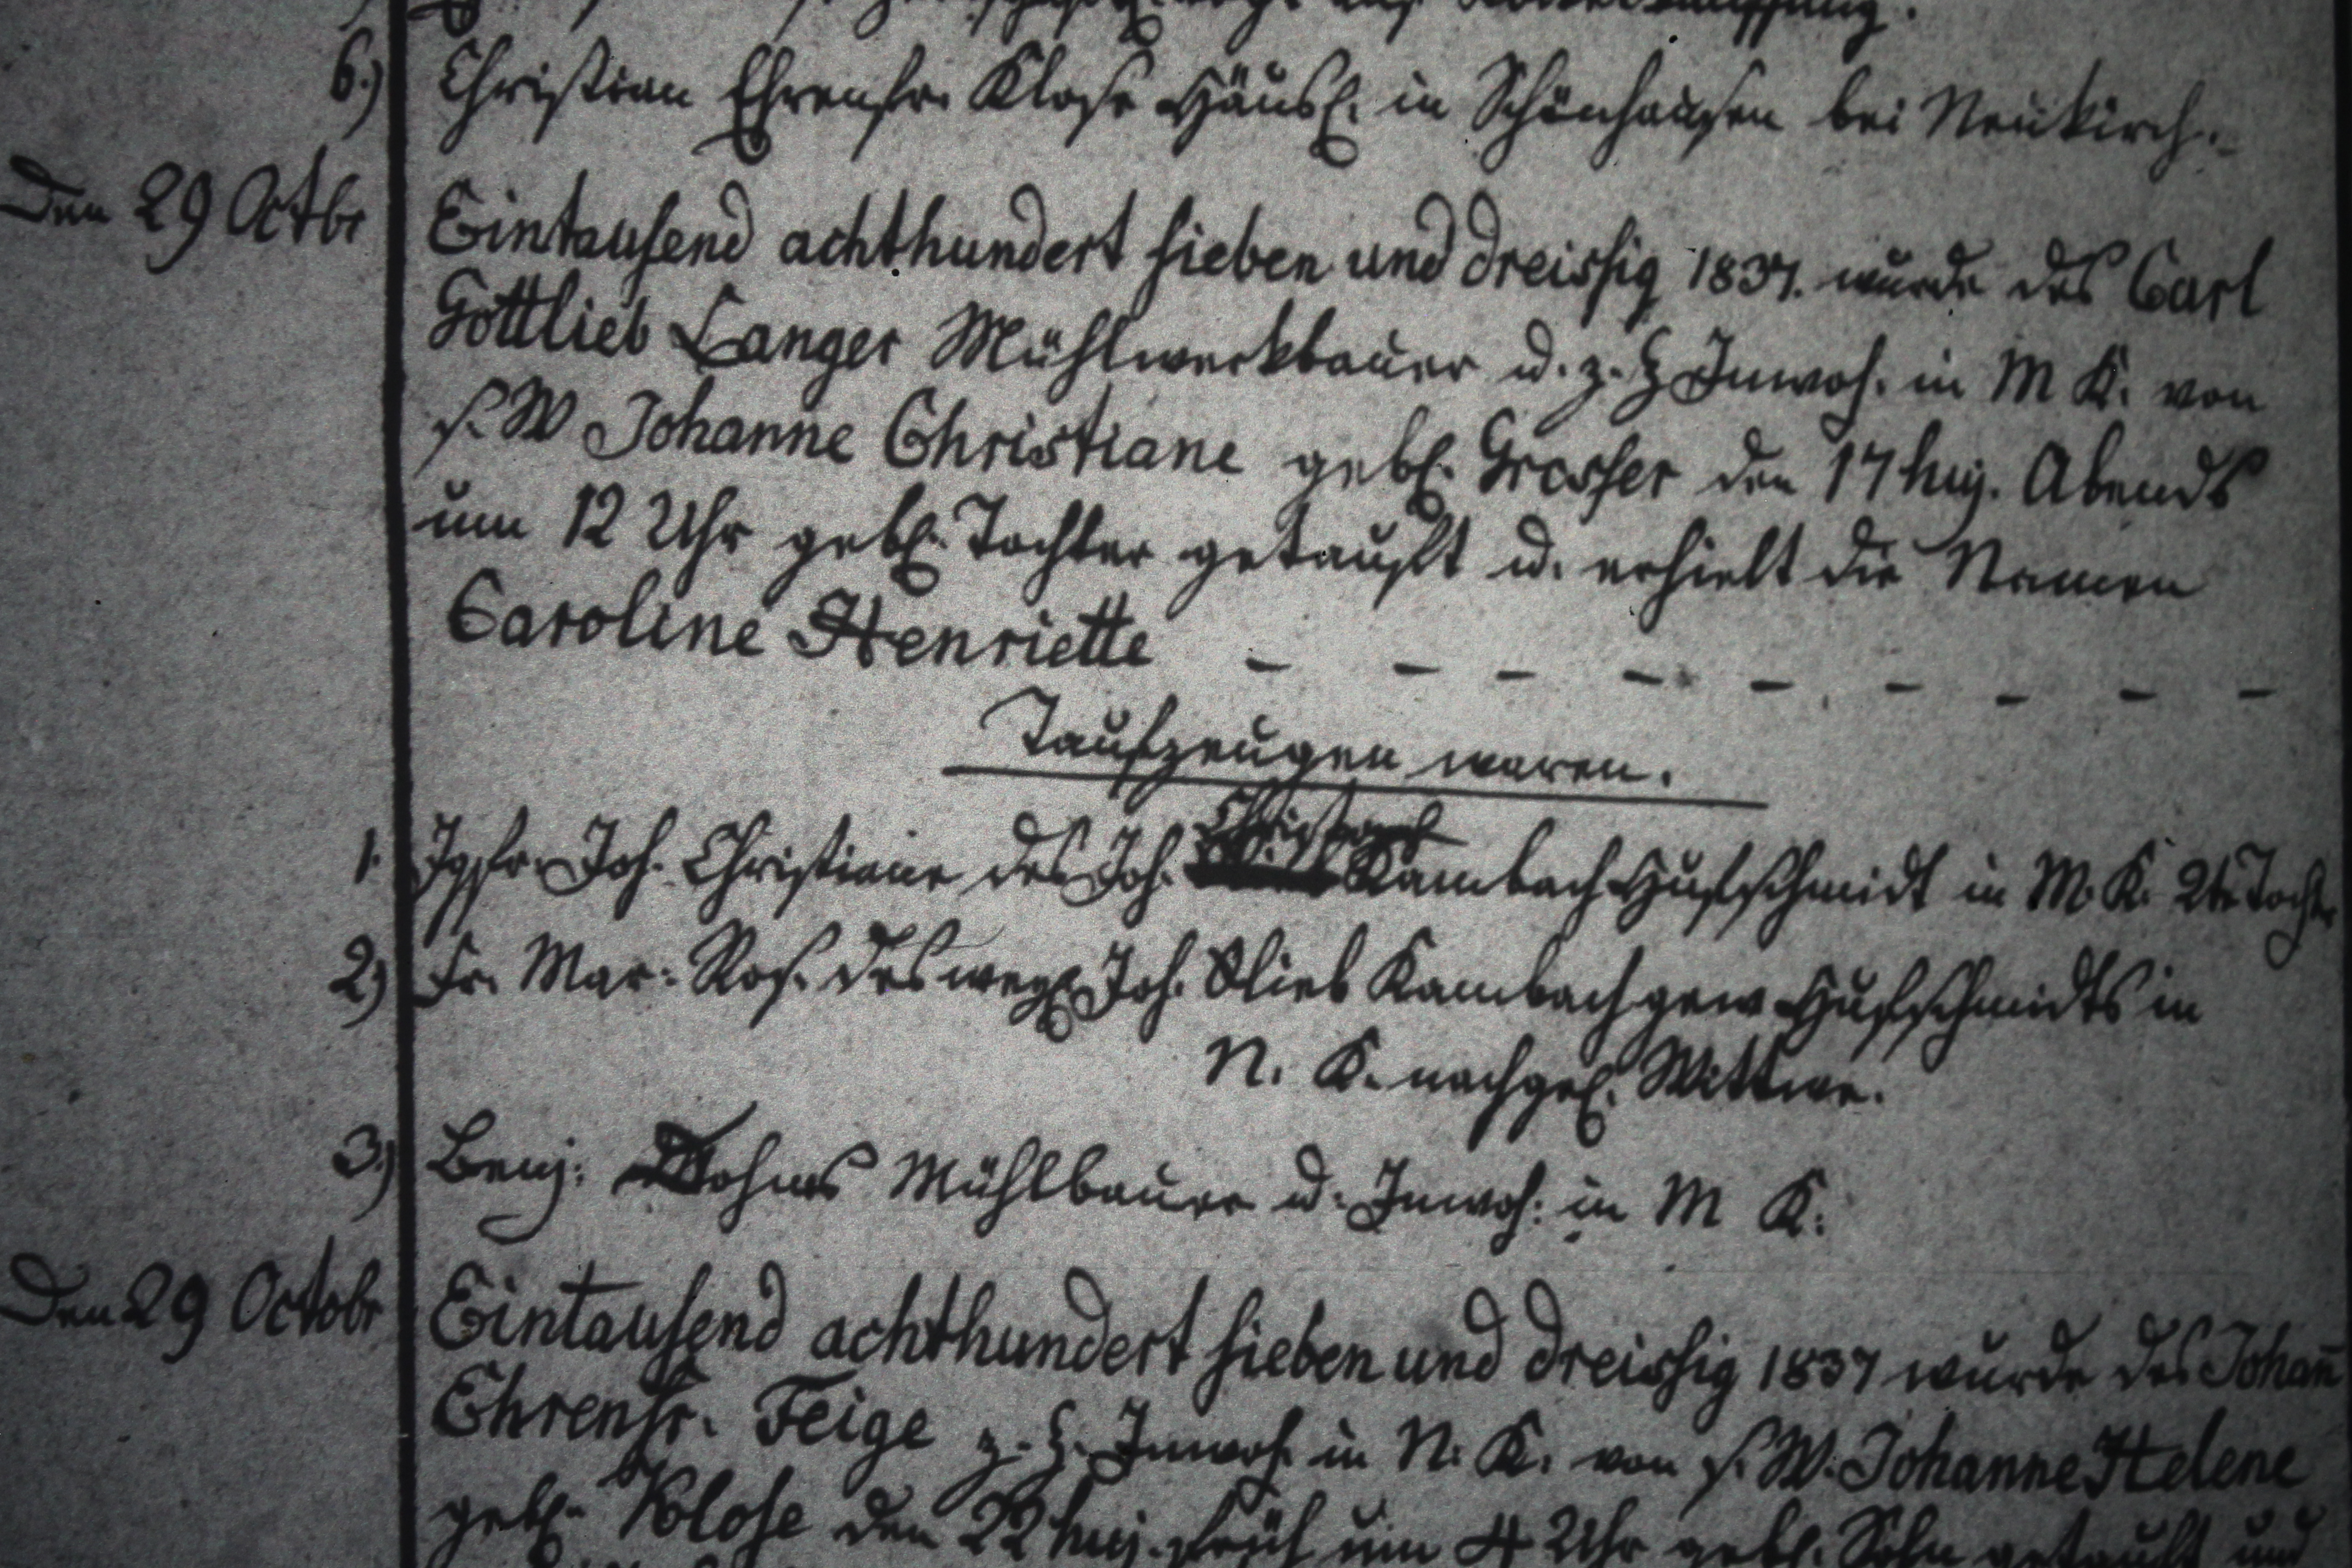 6.) Christian Ehrenfr. Klose Häusl. in Schönhausen bei Neukirch.
Den 29 Octbr Eintausend achthundert sieben und dreissig 1837. wurde des Carl
Gottlieb Langer Mühlwerkbauer u. z. Z Inwoh. in M K. von
s. W Johanne Christiane geb. Grosser den 17 huj. Abends
um 12 Uhr geb. Tochter getauft u. erhielt die Namen
Caroline Henriette - - - - - - - - -
Taufzeugen waren.
1. Jgfr. Joh. Christiane des Joh. Kambach Hufschmidt in M. K. 2te Tochter
2) Fr. Mar: Ros. des weyl Joh. Glieb Kambach gew Hufschmidts in
N. K. nachgel. Wittwe.
3.) Benj: Mühlbauer u. Inwoh: in M K:
Den 29 Octobr Eintausend achthundert sieben und dreissig 1837 wurde des Johan̄
Ehrenfr. Feige z. Z. Inwoh. in N. K. von s. W. Johanne Helene
geb. Klose den 22 huj. früh um 4 Uhr geb. Sohn getauft und